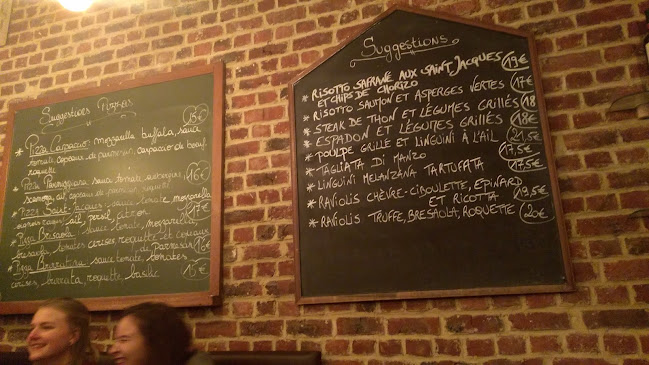 Suggestions Pizzas
15€
* Pizza Carpaccio: mozzarella buffala, sauce
tomate, copeaux de parmesan, carpaccio de bœuf,
roquette
16€
Pizza Parmeggiana sauce tomate, aubergines,
copeaux de parmesan, roquette
* Pizza Saint-Jacques, sauce tomate, mozzarella
17€
ail, persil, citron
* Pizza Bresaola sauce tomate, mozzarella
bresaola, tomates cerises, roquette et copeaux
de parmesan 16€
* Pizza Burratina sauce tomate, tomates
cerises, burrata, roquette, basilic 15€
Suggestions
* RISOTTO SAFRANÉ AUX SAINT JACQUES 19€
ET CHIPS DE CHORIZO
* RISOTTO SAUMON ET ASPERGES VERTES 17€
* STEAK DE THON ET LÉGUMES GRILLÉS 18
* ESPADON ET LÉGUMES GRILLÉS 18€
* POULPE GRILLÉ ET LINGUINI À L'AIL 21,5€
* TAGLIATA DI MANZO 17,5€
* LINGUINI MELANZANA TARTUFATA 17,5€
* RAVIOLIS CHÈVRE-CIBOULETTE, EPINARD
ET RICOTTA 19,5€
* RAVIOLIS TRUFFE, BRESAOLA, ROQUETTE 20€